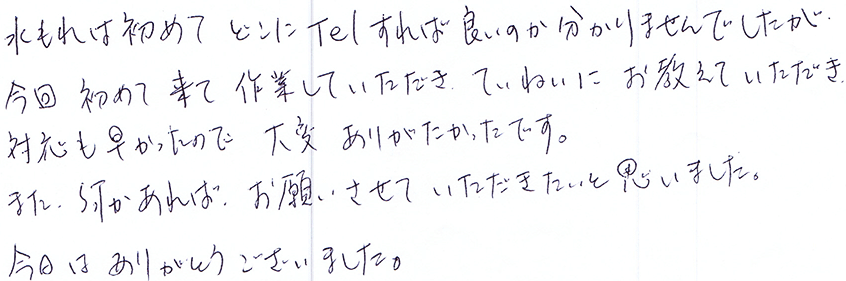 水もれは初めて どこに Tel すれば 良いのか 分かりませんでしたが.
今回 初めて 来て 作業していただき. ていねいに お教えていただき.
対応も 早かったので 大変 ありがたかったです。
また. 何かあれば. お願いさせて いただきたいと 思いました。
今日は ありがとう ございました。